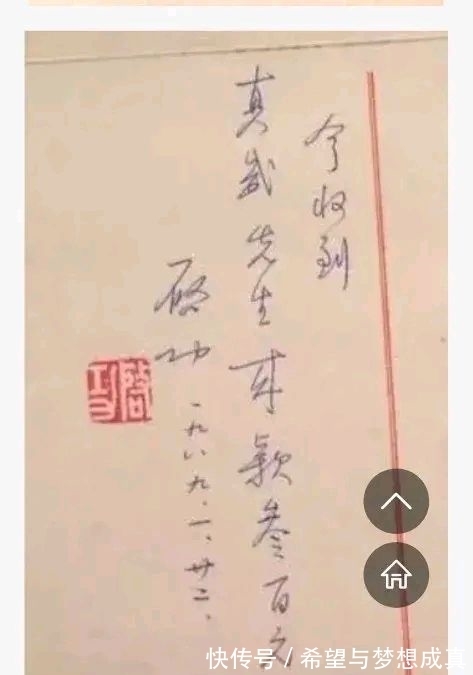 今收到
真先生款叁百元
啓功 一九八九、一、廿二、
啓功
快传号 / 希望与梦想成真